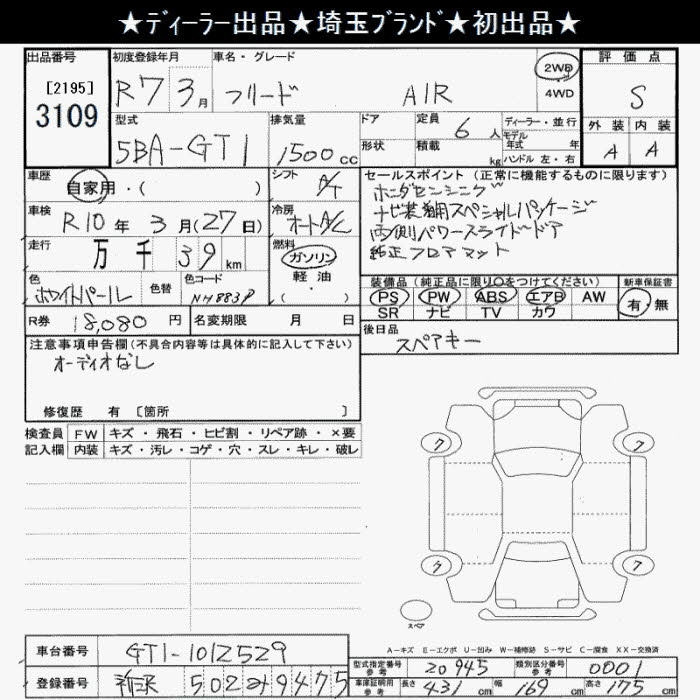 ★ディーラー出品★埼玉ブランド★初出品★
出品番号
[2195]
3109
初度登録年月
R7 3月
車名・グレード
フリード AIR
2WD
4WD
評価点
S
外装 内装
A A
型式
5BA-GT1
排気量
1500cc
ドア
形状
定員 6人
積載 kg
ディーラー・並行
モデル年式 年
ハンドル 左・右
車歴
自家用・( )
シフト A/T
車検
R10年 3月(27日)
冷房 オートA/C
走行
万 千 39 km
燃料
ガソリン
軽・油
( )
色
ホワイトパール
色替
色コード
NH883P
セールスポイント (正常に機能するものに限ります)
ホンダセンシング
ナビ装着用スペシャルパッケージ
両側パワースライドドア
純正フロアマット
装備品 (純正品に限り〇をつけてください)
PS PW ABS エアB AW
SR ナビ TV カワ
新車保証書
有 無
R券 18,080円
名変期限 月 日
後日品
スペアキー
注意事項申告欄(不具合内容等は具体的に記入して下さい)
オーディオなし
修復歴 有 [箇所 ]
検査員 FW キズ・飛石・ヒビ割・リペア跡・×要
記入欄 内装 キズ・汚レ・コゲ・穴・スレ・キレ・破レ
7 7
7 7
スペア
A-キズ E-エクボ U-凹み W-補修跡 S-サビ C-腐食 XX-交換済
車台番号 GT1-1012529
型式指定番号 参考 20945
類別区分番号 参考 0001
登録番号 所沢 502 み 9475
車庫証明用 参考 長さ 431cm 幅 169cm 高さ 175cm